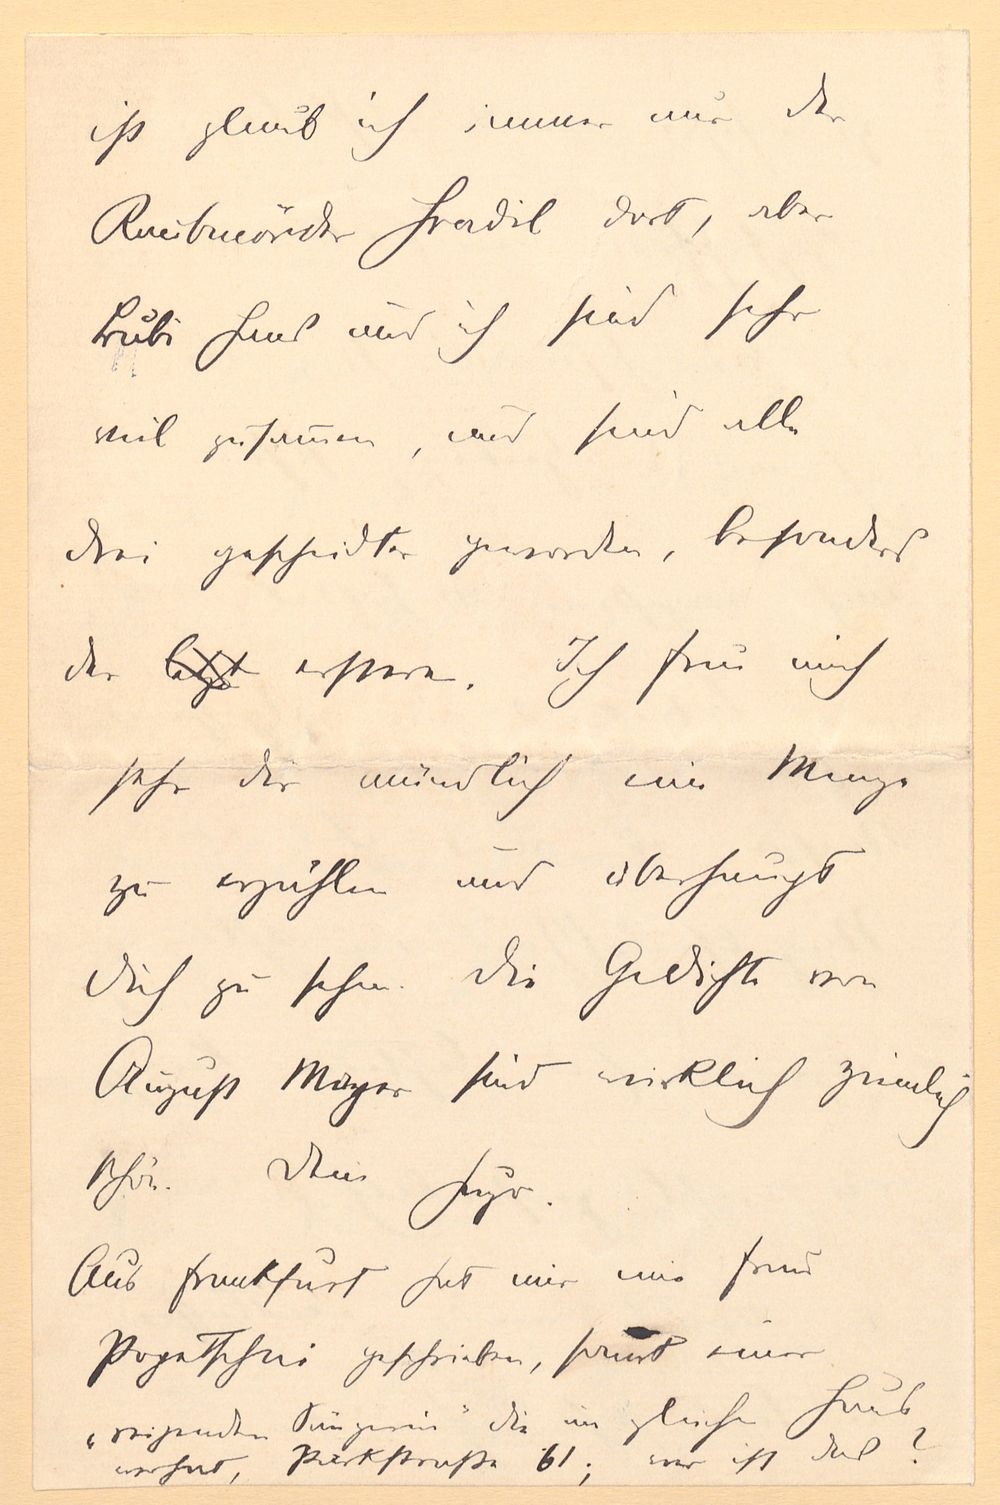 ist glaub ich immer nur der
Raubmörder Hradil dort, aber
Bubi Hans und ich sind sehr
viel zusammen, und sind alle
drei gescheidter geworden, besonders
der letzt erstere. Ich freu mich
sehr dir mündlich eine Menge
zu erzählen und überhaupt
Dich zu sehen. Die Gedichte von
August Mayer sind wirklich ziemlich
schön. Dein Hugo.
Aus Frankfurt hat mir eine Frau
geschrieben, sammt einer
„reizenden Sängerin“ die im gleichen Haus
wohnt, Parkstrasse 61; wer ist das?